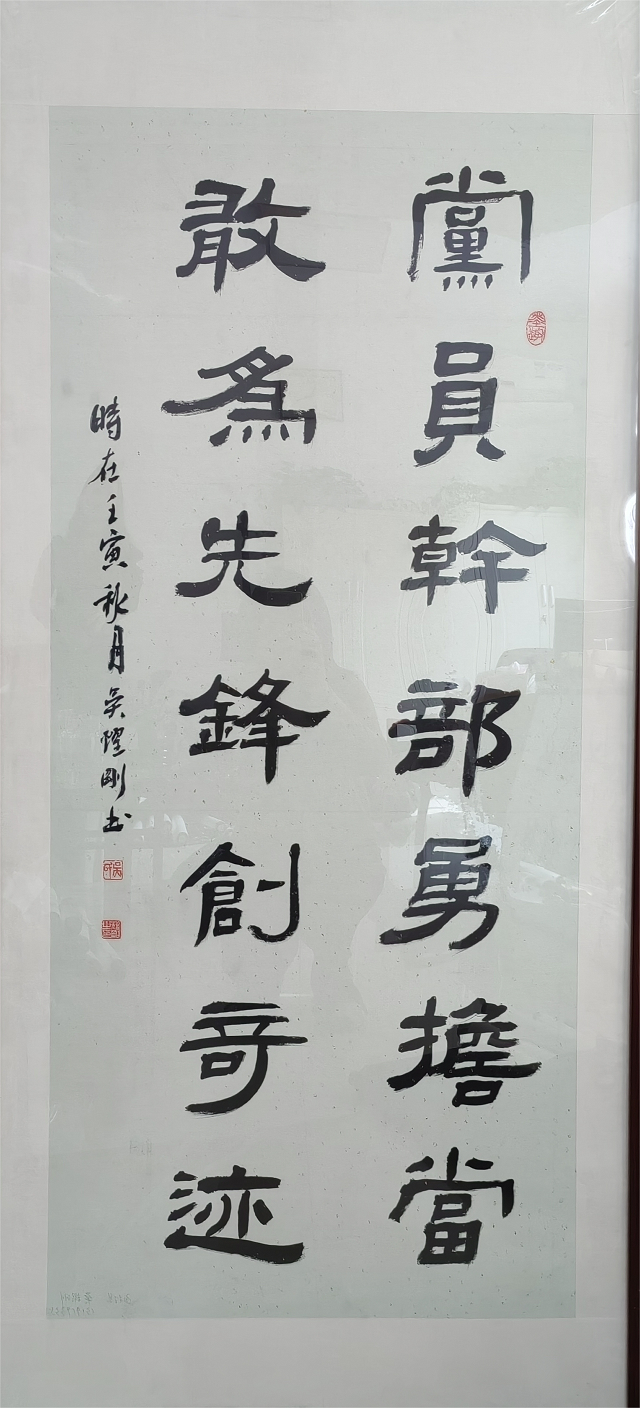 黨員幹部勇擔當
敢為先鋒創奇迹
時在壬寅秋月吳煋剛书